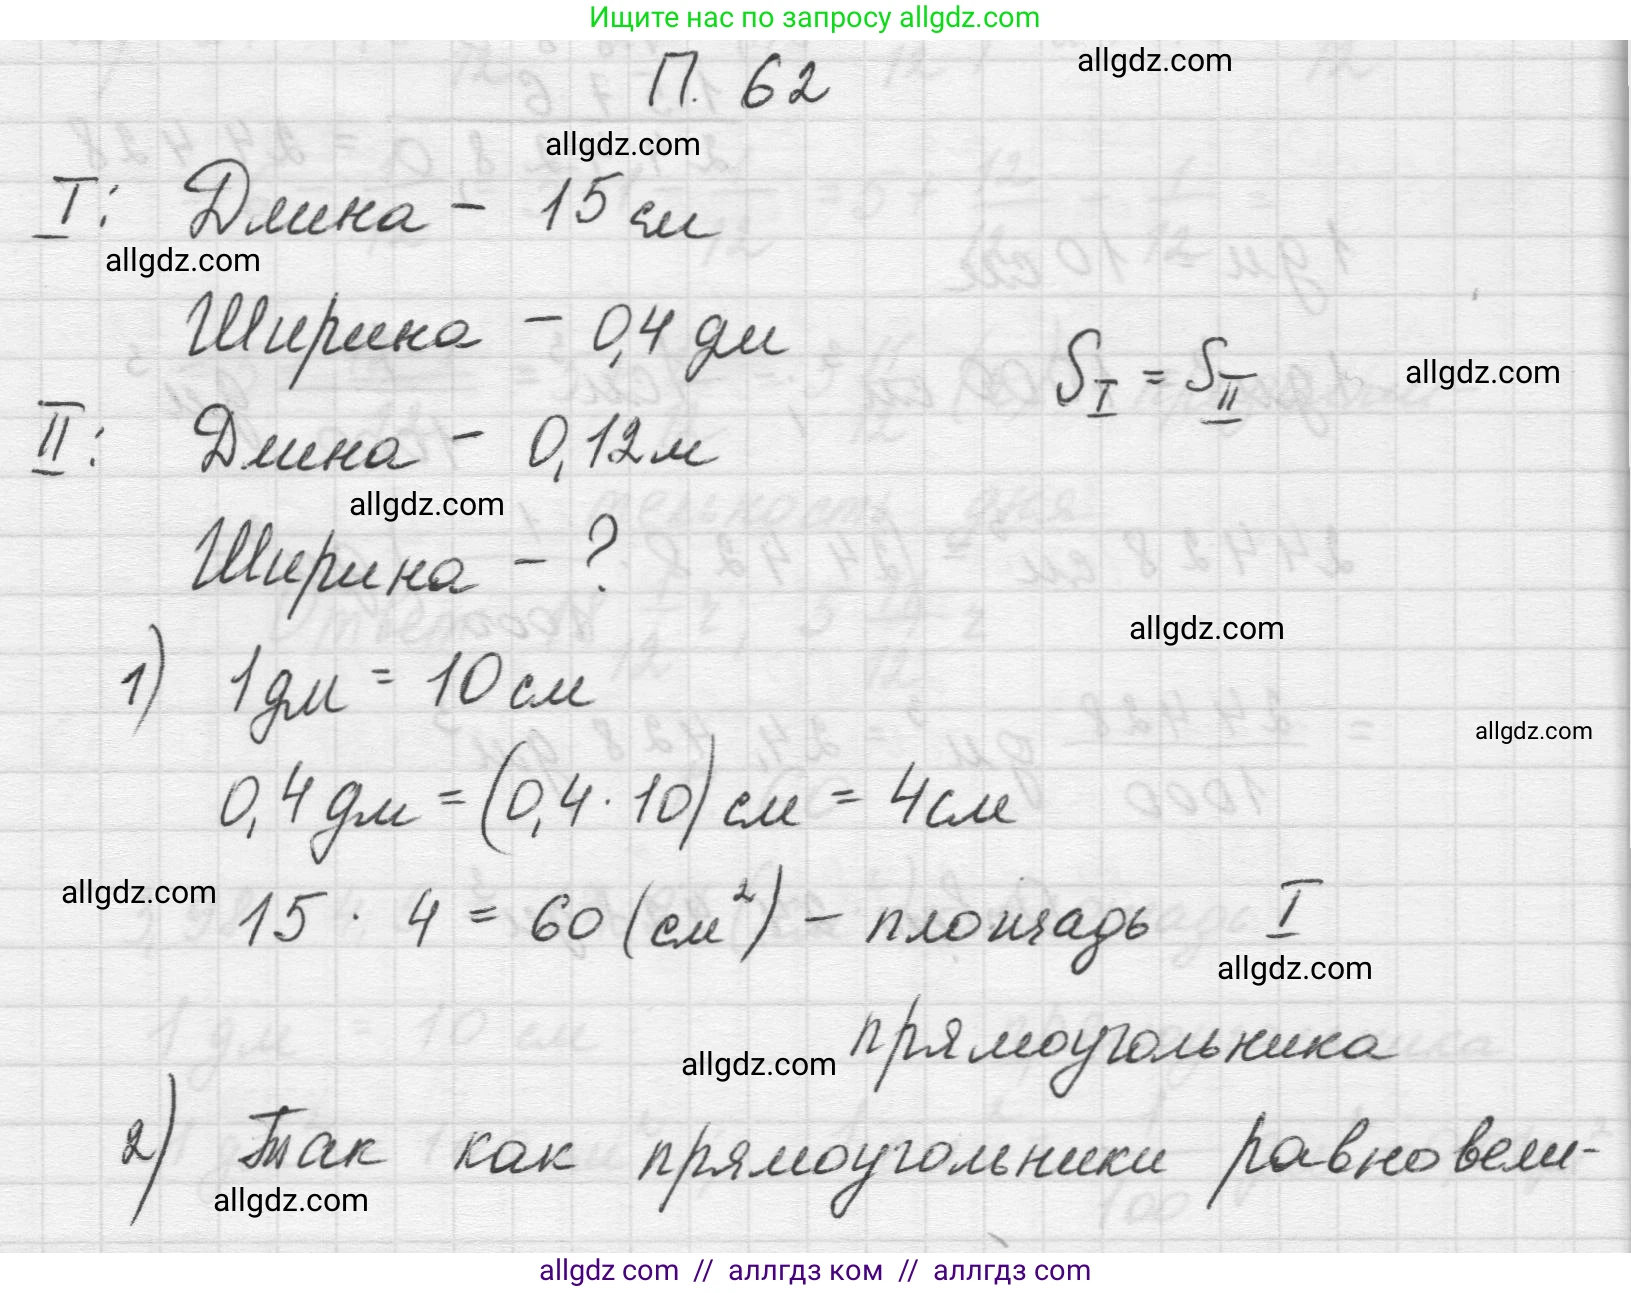 Ищите нас по запросу allgdz.com
П. 62
allgdz.com
allgdz.com
I: Длина – 15 см
allgdz.com
Ширина – 0,4 дм
S I = S II
allgdz.com
II: Длина – 0,12 м
allgdz.com
Ширина – ?
allgdz.com
1) 1 дм = 10 см
allgdz.com
0,4 дм = (0,4 · 10) см = 4 см
allgdz.com
15 · 4 = 60 (см²) – площадь I
allgdz.com
прямоугольника
allgdz.com
2) Так как прямоугольники равновели-
allgdz.com
allgdz com // аллгдз ком // аллгдз com